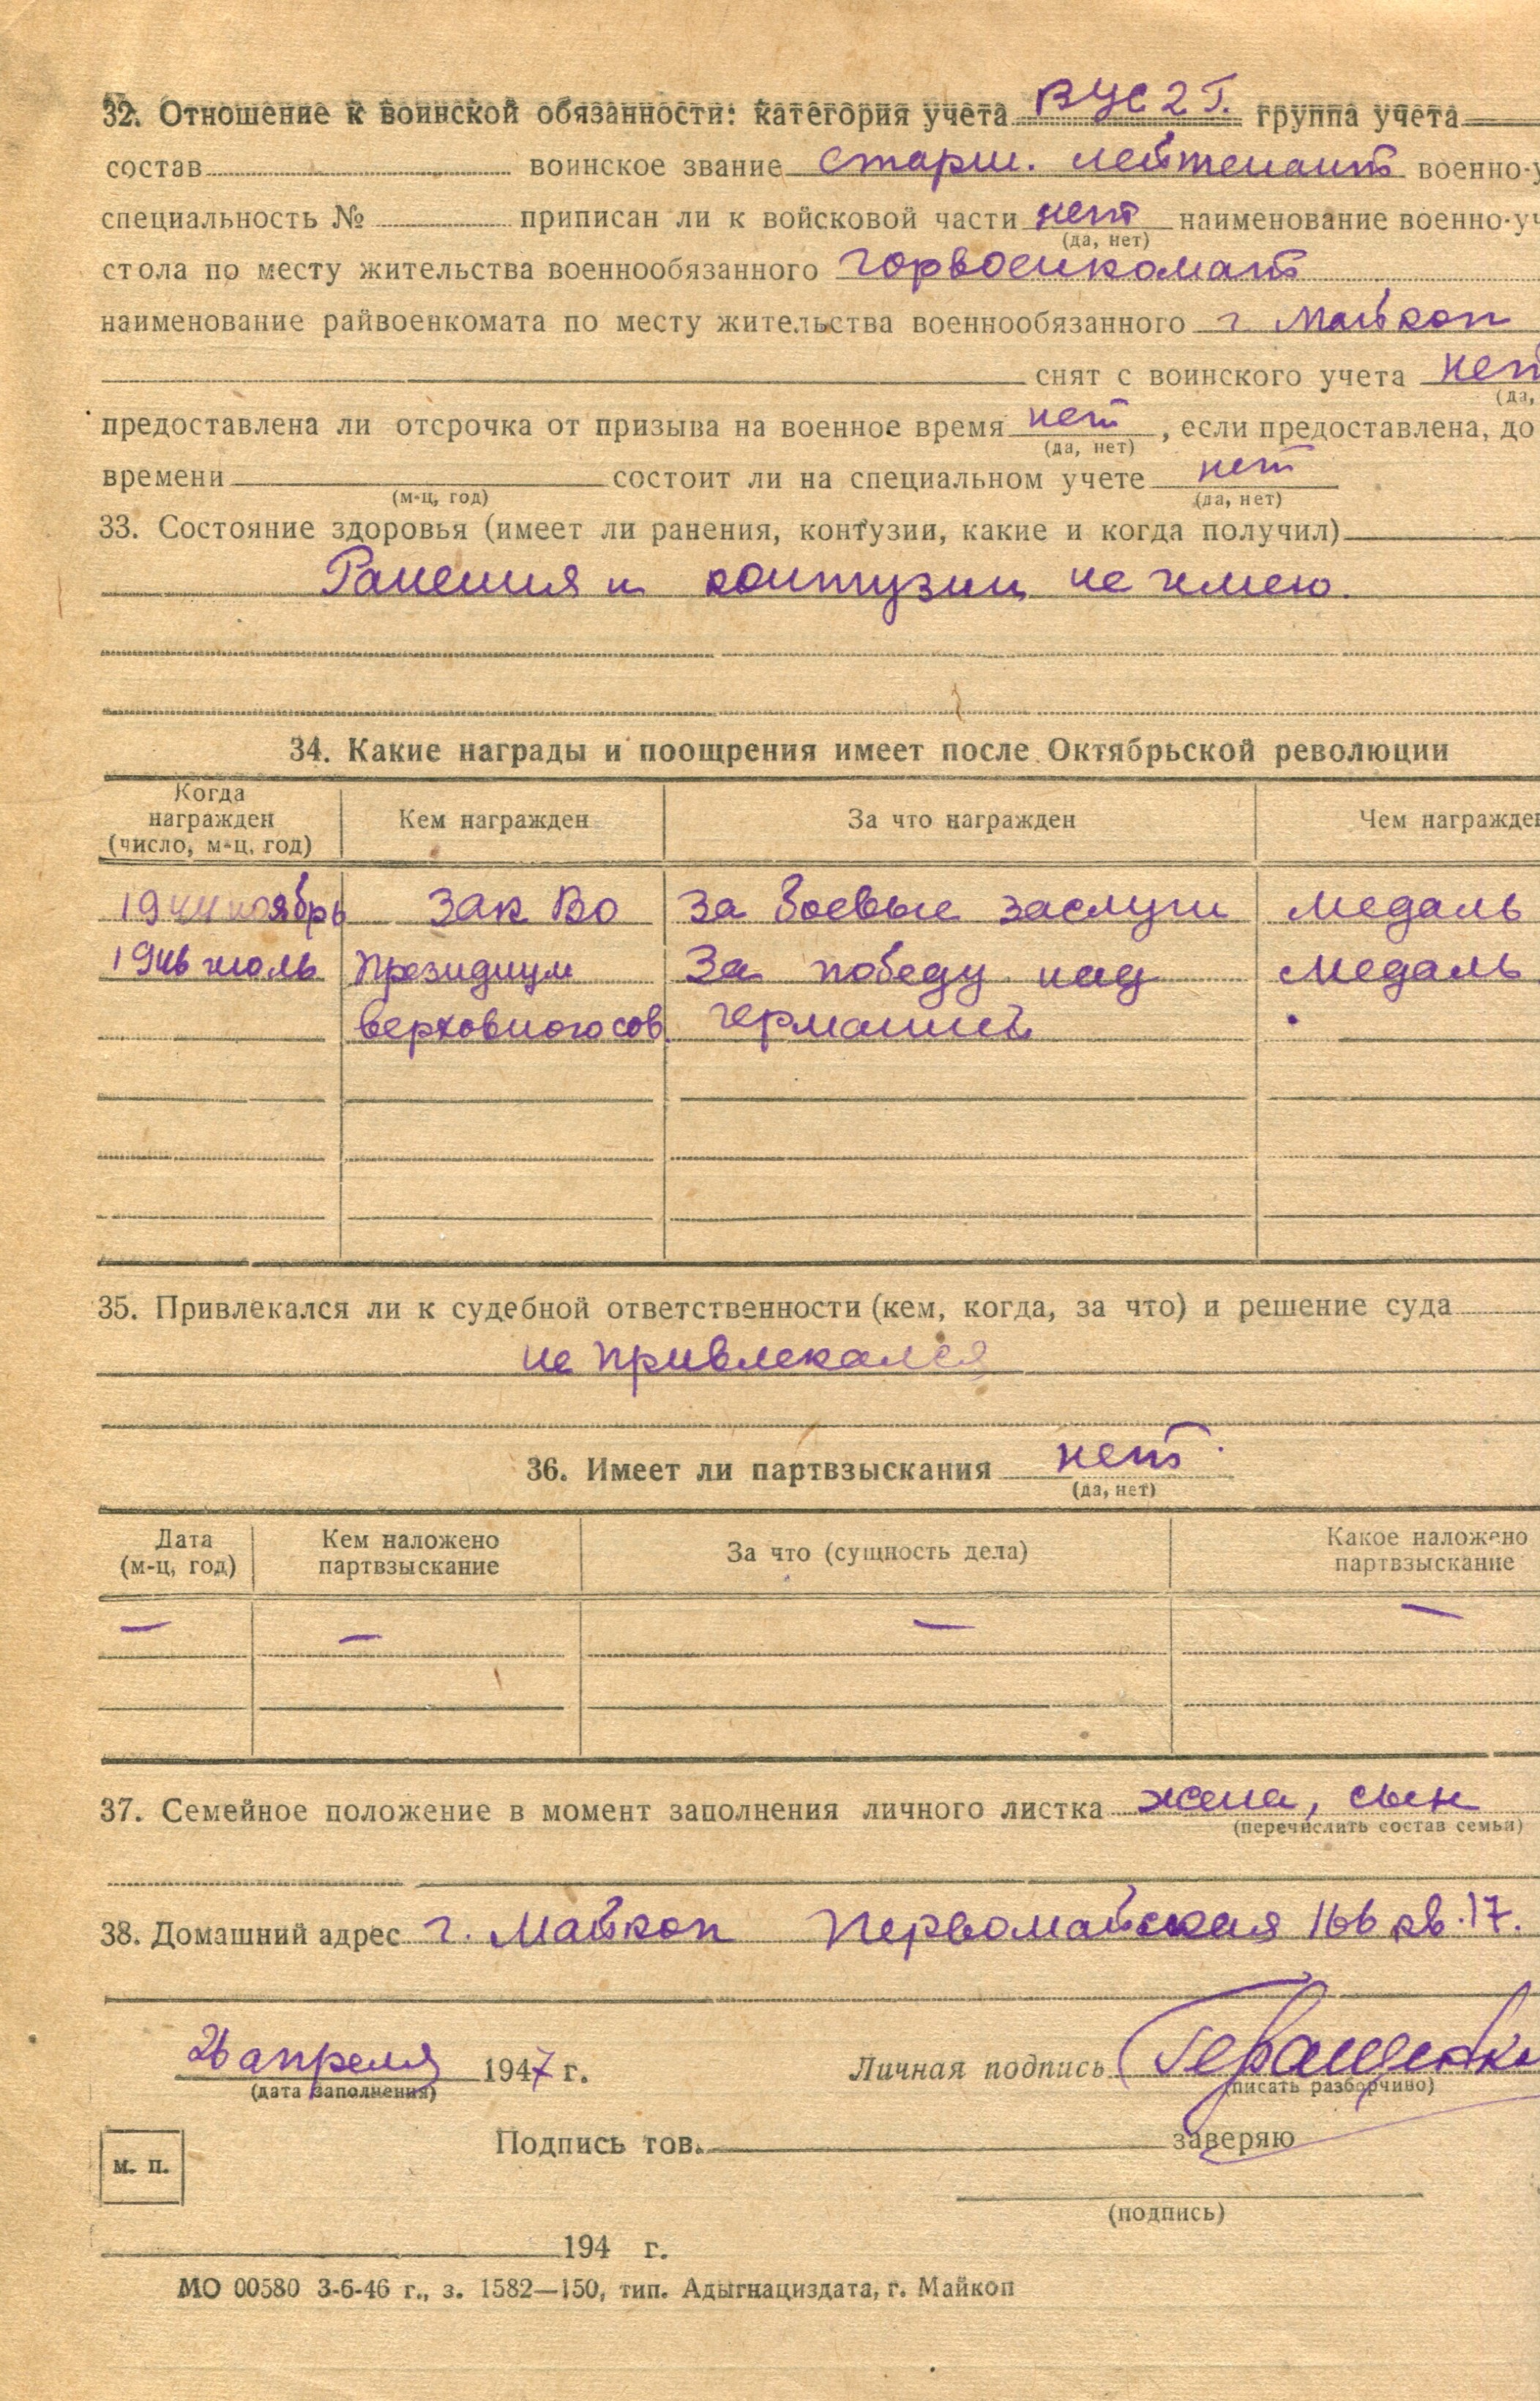 32. Отношение к воинской обязанности: категория учета ВУС 2 Г. группа учета
состав воинское звание старш. лейтенант военно-у
специальность № приписан ли к войсковой части нет наименование военно-уч
(да, нет)
стола по месту жительства военнообязанного горвоенкомат
наименование райвоенкомата по месту жительства военнообязанного г Майкоп
снят с воинского учета нет
(да,
предоставлена ли отсрочка от призыва на военное время нет, если предоставлена, до
(да, нет)
времени состоит ли на специальном учете нет
(м-ц, год) (да, нет)
33. Состояние здоровья (имеет ли ранения, контузии, какие и когда получил)
Ранения и контузии не имею.
34. Какие награды и поощрения имеет после Октябрьской революции
Когда награжден (число, м-ц, год) Кем награжден За что награжден Чем награжден
1944 ноябрь Зак Во За боевые заслуги медаль
1946 июль Президиум За победу над медаль
верховного сов. германией
35. Привлекался ли к судебной ответственности (кем, когда, за что) и решение суда
не привлекался
36. Имеет ли партвзыскания нет
(да, нет)
Дата (м-ц, год) Кем наложено партвзыскание За что (сущность дела) Какое наложено партвзыскание
— — — —
37. Семейное положение в момент заполнения личного листка жена, сын
(перечислить состав семьи)
38. Домашний адрес г. Майкоп Первомайская 166 кв. 17.
26 апреля 1947 г. Личная подпись Геращенко
(дата заполнения) (писать разборчиво)
Подпись тов. заверяю
м. п.
(подпись)
194 г.
МО 00580 3-6-46 г., з. 1582—150, тип. Адыгнациздата, г. Майкоп